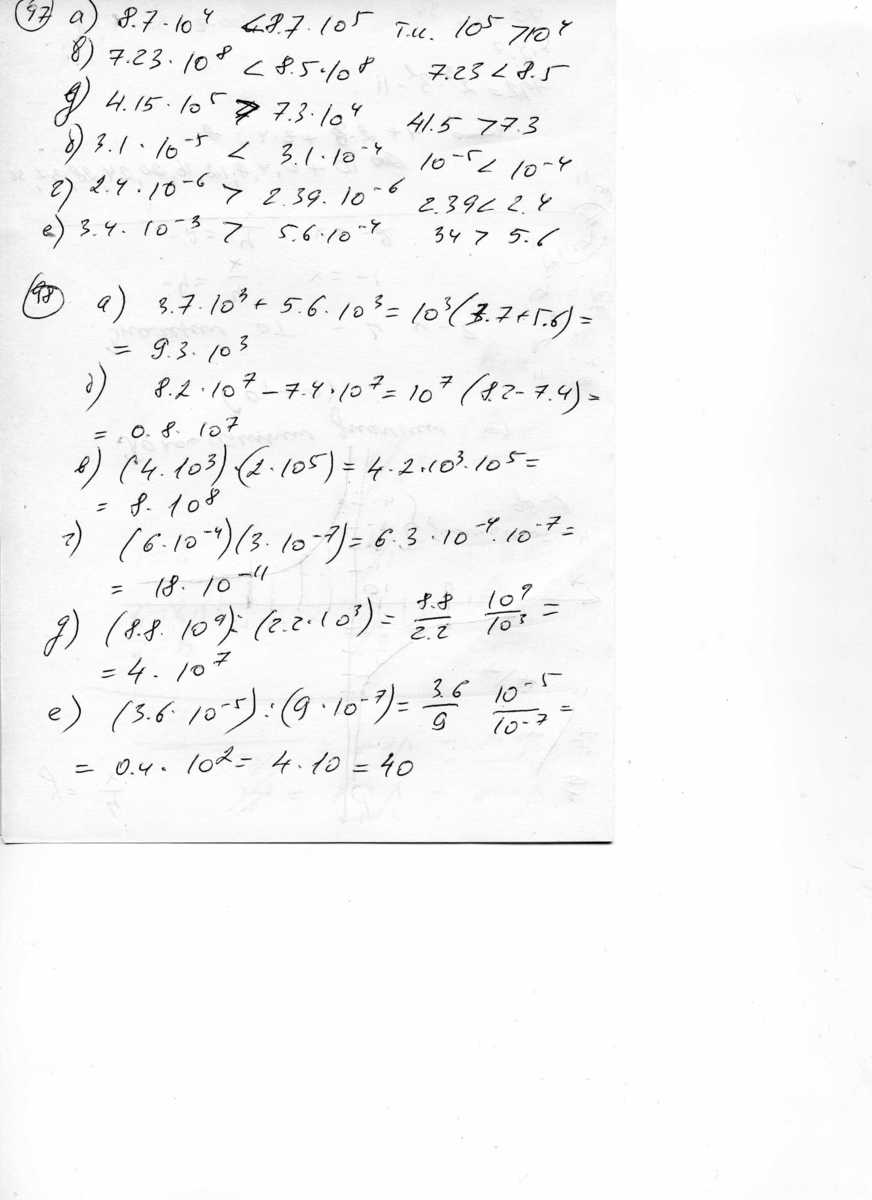 97 а) 8.7·10⁴ < 8.7·10⁵ т.к. 10⁵ > 10⁴
в) 7.23·10⁸ < 8.5·10⁸ 7.23 < 8.5
д) 4.15·10⁵ > 7.3·10⁴ 41.5 > 7.3
б) 3.1·10⁻⁵ < 3.1·10⁻⁴ 10⁻⁵ < 10⁻⁴
г) 2.4·10⁻⁶ > 2.39·10⁻⁶ 2.39 < 2.4
е) 3.4·10⁻³ > 5.6·10⁻⁴ 34 > 5.6
98 а) 3.7·10³ + 5.6·10³ = 10³(3.7+5.6) =
= 9.3·10³
б) 8.2·10⁷ – 7.4·10⁷ = 10⁷(8.2 – 7.4) =
= 0.8·10⁷
в) (4·10³)·(2·10⁵) = 4·2·10³·10⁵ =
= 8·10⁸
г) (6·10⁻⁴)(3·10⁻⁷) = 6·3·10⁻⁴·10⁻⁷ =
= 18·10⁻¹¹
д) (8.8·10⁹) : (2.2·10³) = 8.8/2.2 10⁹/10³ =
= 4·10⁷
е) (3.6·10⁻⁵) : (9·10⁻⁷) = 3.6/9 10⁻⁵/10⁻⁷ =
= 0.4·10² = 4·10 = 40